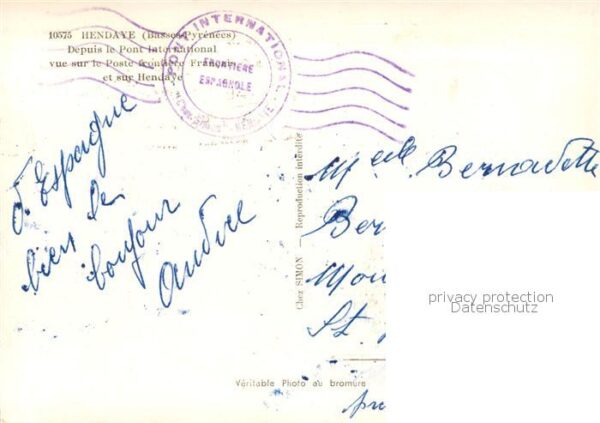 10575 HENDAYE (Basses-Pyrénées)
Depuis le Pont International
vue sur le Poste frontière Français
et sur Hendaye
PONT INTERNATIONAL
FRONTIERE
ESPAGNOLE
HENDAYE
d'Espagne
bien le
bonjour
André
Chez SIMON — Reproduction interdite
Melle Bernadette
Ber
Mou
St.
privacy protection
Datenschutz
Véritable Photo au bromure